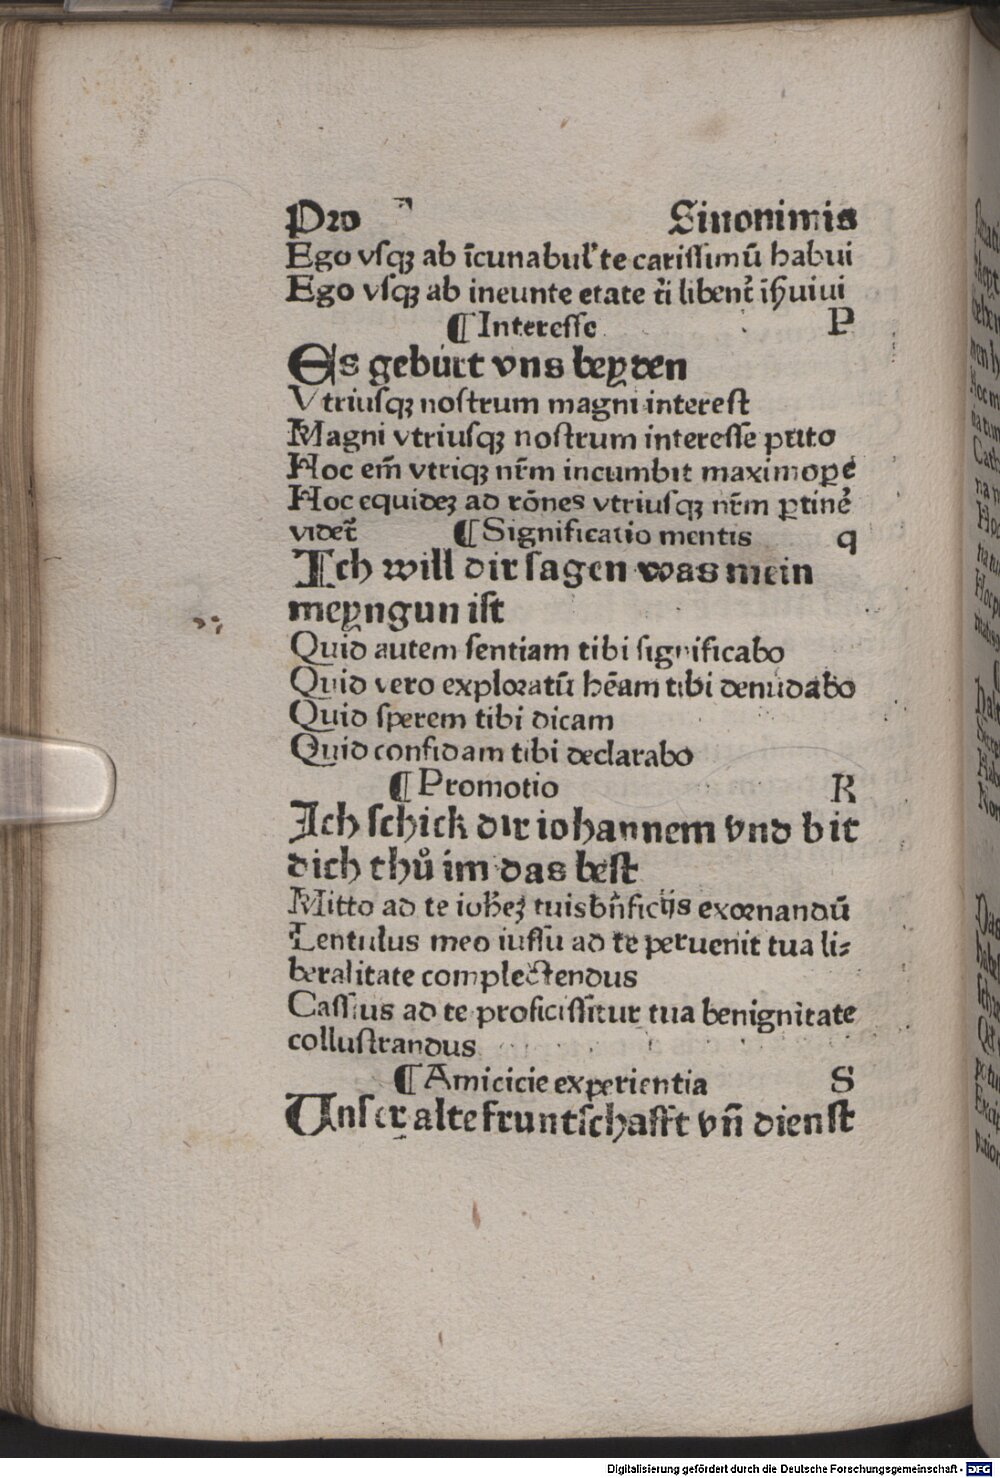 Pro Sinonimis
Ego vſqꝫ ab īcunabul' te cariſſimū habui
Ego vſqꝫ ab ineunte etate
¶ Intereſſe P
Es gebürt vns beyden
Vtriuſqꝫ noſtrum magni intereſt
Magni vtriuſqꝫ noſtrum intereſſe puto
Hoc em̄ vtriqꝫ nr̄m incumbit maximopꝑe
Hoc equideꝫ ad rōnes vtriuſqꝫ nr̄m ꝑtinē
videt᷑ ¶ Significatio mentis q
Ich will dir ſagen was mein
meyngun iſt
Quid autem ſentiam tibi ſignificabo
Quid vero exploꝛatū hēam tibi denudabo
Quid ſperem tibi dicam
Quid confidam tibi declarabo
¶ Promotio R
Ich ſchick dir iohannem vnd bit
dich thů im das beſt
Mitto ad te ioh̄eꝫ tuis bn̄ficijs exoꝛnandū
Lentulus meo iuſſu ad te peruenit tua li⸗
beralitate complectendus
Caſſius ad te proficiſſitur tua benignitate
colluſtrandus
¶ Amicicie experientia S
Vnſer alte fruntſchafft vn̄ dienſt
Digitalisierung gefördert durch die Deutsche Forschungsgemeinschaft - DFG